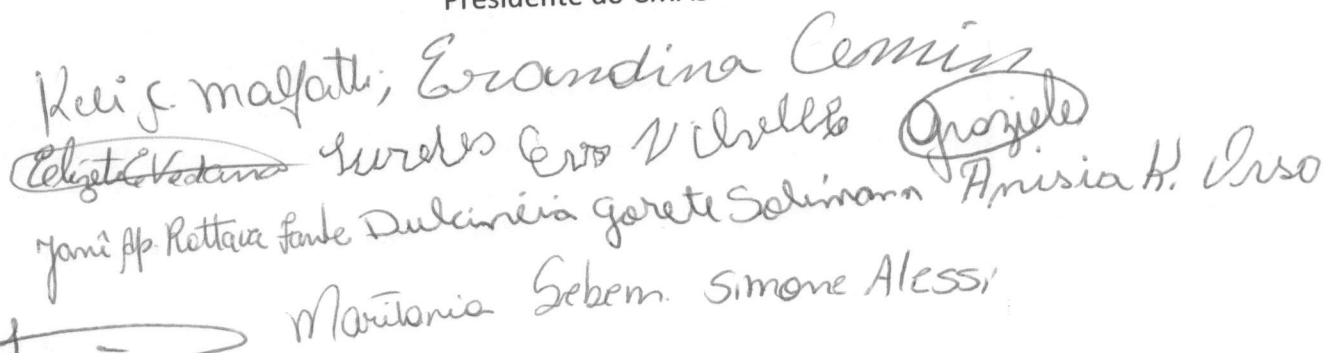 Presidente do CMAS
Keli S. Malfatti, Erandina Comin
Elizete Vedana Lurdes Eva Vibrelle Graziele
Jani Ap. Rottava Fante Dulcinéia Gorete Solimann Anisia K. Orso
Maritania Sebem. Simone Alessi